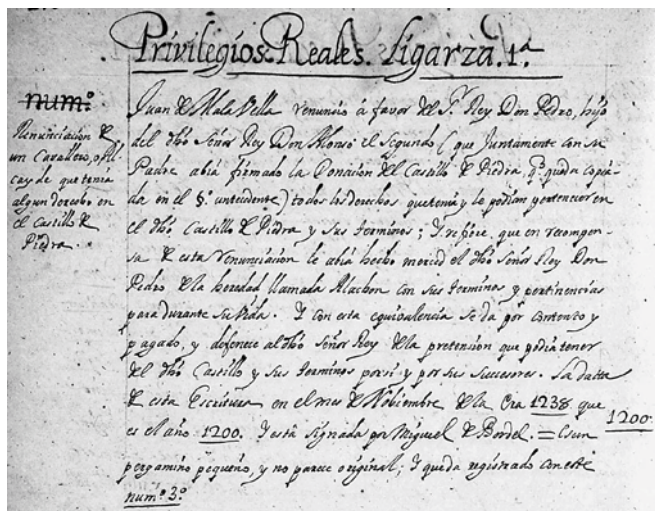 Privilegios Reales. Ligarza. 1ª.
numº
Renunciacion de
un Cavallero, o Al-
cayde que tenia
algun derecho en
el Castillo de
Piedra.
Juan de Malavella renuncio à favor del Sr. Rey Don Pedro, hijo
del dho Señor Rey Don Alonso el Segundo (que Juntamente con su
Padre abia firmado la Donacion del Castillo de Piedra, q.e queda copia-
da en el §. antecedente) todos los derechos que tenia y le podian pertenecer en
el dho Castillo de Piedra y sus terminos; I refiere, que en recompen-
sa de esta renunciacion le abia hecho merced el dho Señor Rey Don
Pedro de la heredad llamada Alachon con sus terminos y pertinencias
para durante su vida. I con esta equivalencia se da por contento y
pagado, y defenece al dho Señor Rey de la pretension que podia tener
del dho Castillo y sus terminos por si y por sus successores. La datta
de esta Escritura en el mes de Nobiembre de la Era 1238 que
es el año 1200. I està signada por Miguel de Bordel. = Es un
1200
pergamino pequeño, y no parece original; I queda registrado con este
numº 3º